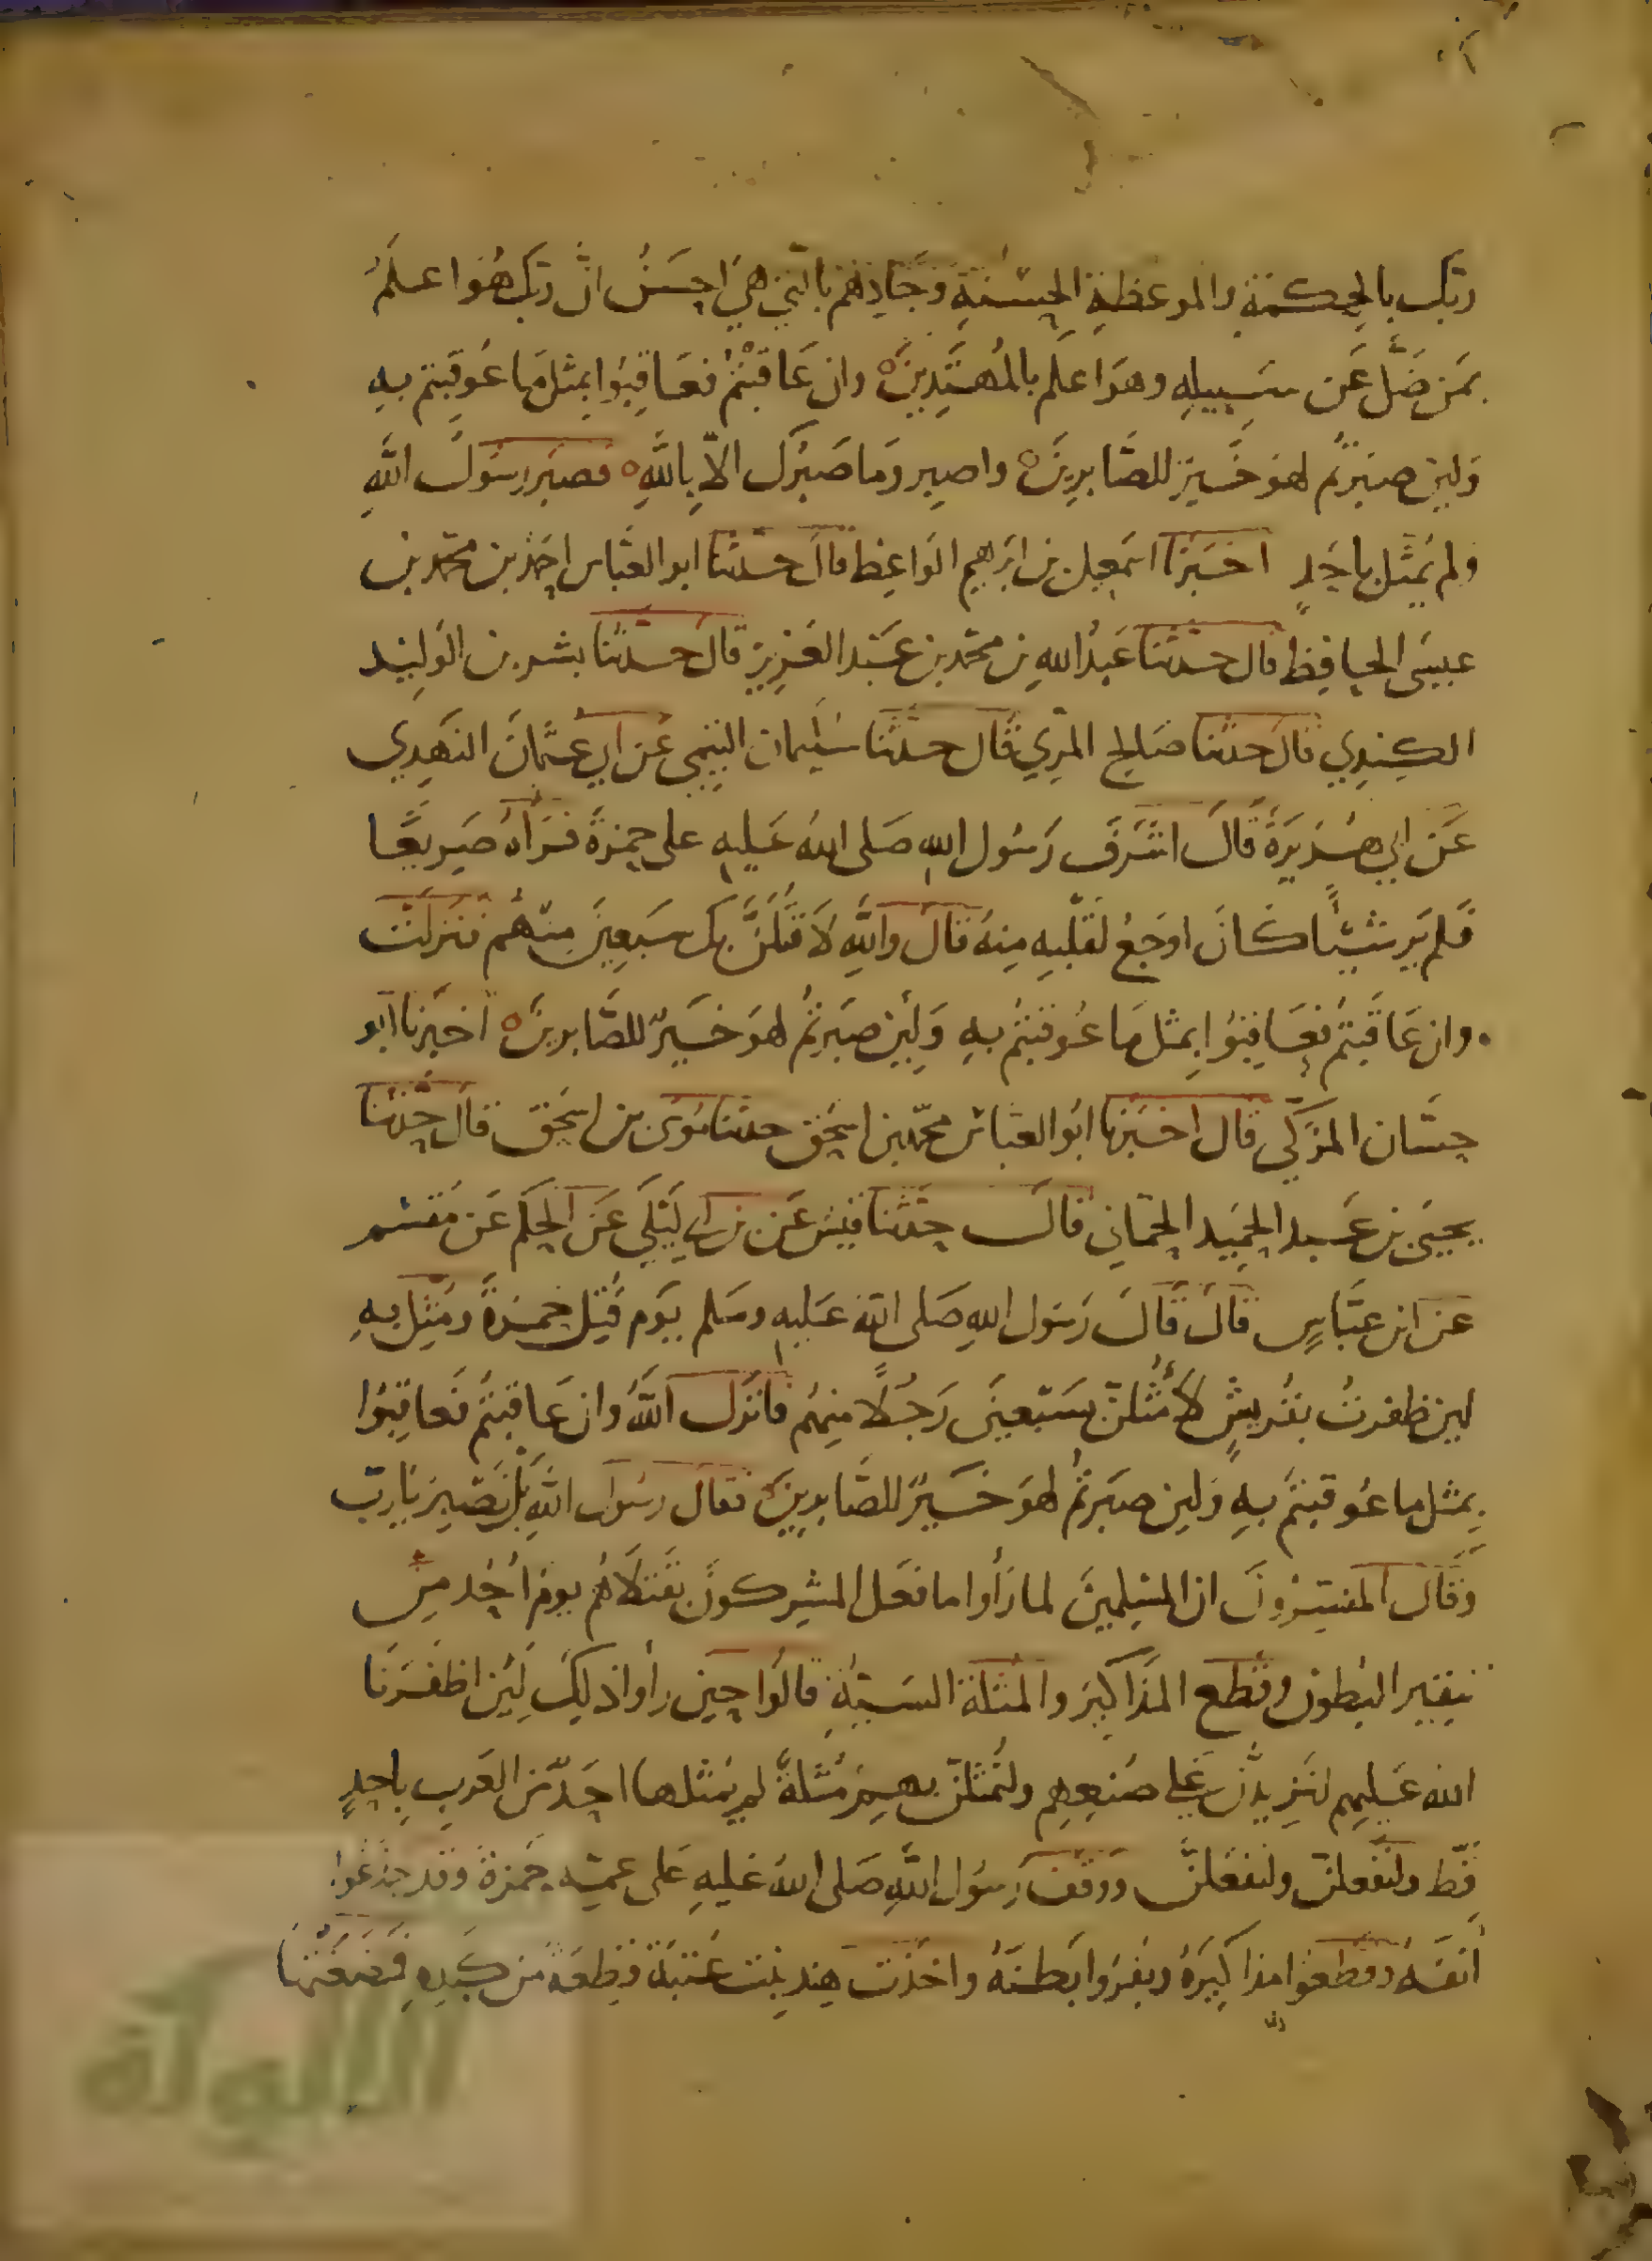 ربك بالحكمة والموعظة الحسنة وجادلهم بالتي هي احسن ان ربك هو اعلم
بمن ضل عن سبيله وهو اعلم بالمهتدين ه وان عاقبتم فعاقبوا بمثل ما عوقبتم به
ولين صبرتم لهو خير للصابرين ه واصبر وما صبرك الا بالله ه فصبر رسول الله
ولم يمثل باحد اخبرنا اسمعيل بن ابراهيم الواعظ قال حدثنا ابو العباس احمد بن محمد بن
عيسى الحافظ قال حدثنا عبد الله بن محمد بن عبد العزيز قال حدثنا بشر بن الوليد
الكندي قال حدثنا صالح المري قال حدثنا سليمان التيمي عن ابي عثمان النهدي
عن ابي هريرة قال اشرف رسول الله صلى الله عليه على حمزة فرآه صريعا
فلم ير شيئا كان اوجع لقلبه منه قال والله لاقتلن بك سبعين منهم فنزلت
وان عاقبتم فعاقبوا بمثل ما عوقبتم به ولئن صبرتم لهو خير للصابرين ه اخبرنا ابو
حسان المزكي قال اخبرنا ابو العباس محمد بن اسحق حدثنا موسى بن اسحق قال حدثنا
يحيى بن عبد الحميد الحماني قال حدثنا قيس عن بن ابي ليلى عن الحكم عن مقسم
عن ابن عباس قال قال رسول الله صلى الله عليه وسلم يوم قتل حمزة ومثل به
لين ظفرت بقريش لأمثلن بسبعين رجلا منهم فانزل الله وان عاقبتم فعاقبوا
بمثل ما عوقبتم به ولين صبرتم لهو خير للصابرين فقال رسول الله بل نصبر يا رب
وقال المفسرون ان المسلمين لما رأوا ما فعل المشركون بقتلاهم يوم احد من
تبقير البطون وقطع المذاكير والمثلة السيئة قالوا حين رأوا ذلك لئن اظفرنا
الله عليهم لنزيدن على صنيعهم ولنمثلن بهم مثلة لم يمثلها احد من العرب باحد
قط ولنفعلن ولنفعلن ووقف رسول الله صلى الله عليه على عمه حمزة وقد جدعوا
أنفه وقطعوا مذاكيره وبقروا بطنه واخذت هند بنت عتبة قطعة من كبده فمضغتها
الالوكة